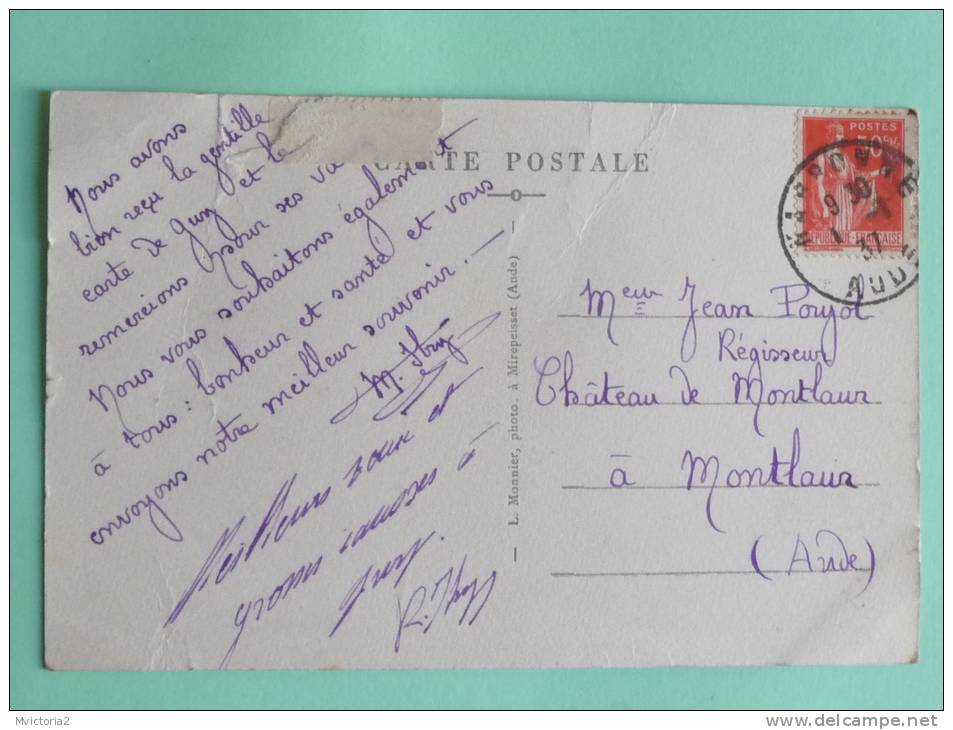 Nous avons
bien reçu la gentille
carte de Guy et le
remercions pour ses
Nous vous souhaitons également
à tous : bonheur et santé et vous
envoyons notre meilleur souvenir. —
M.
Meilleurs vœux et
grosses à
Guy.
CARTE POSTALE
L. Monnier, photo. à Mirepeisset (Aude)
POSTES
50c
RÉPUBLIQUE FRANÇAISE
NARBONNE
9 30
1
37
AUDE
Meur Jean Poujol
Régisseur
Château de Montlaur
à Montlaur
(Aude)
Mvictoria2
www.delcampe.net